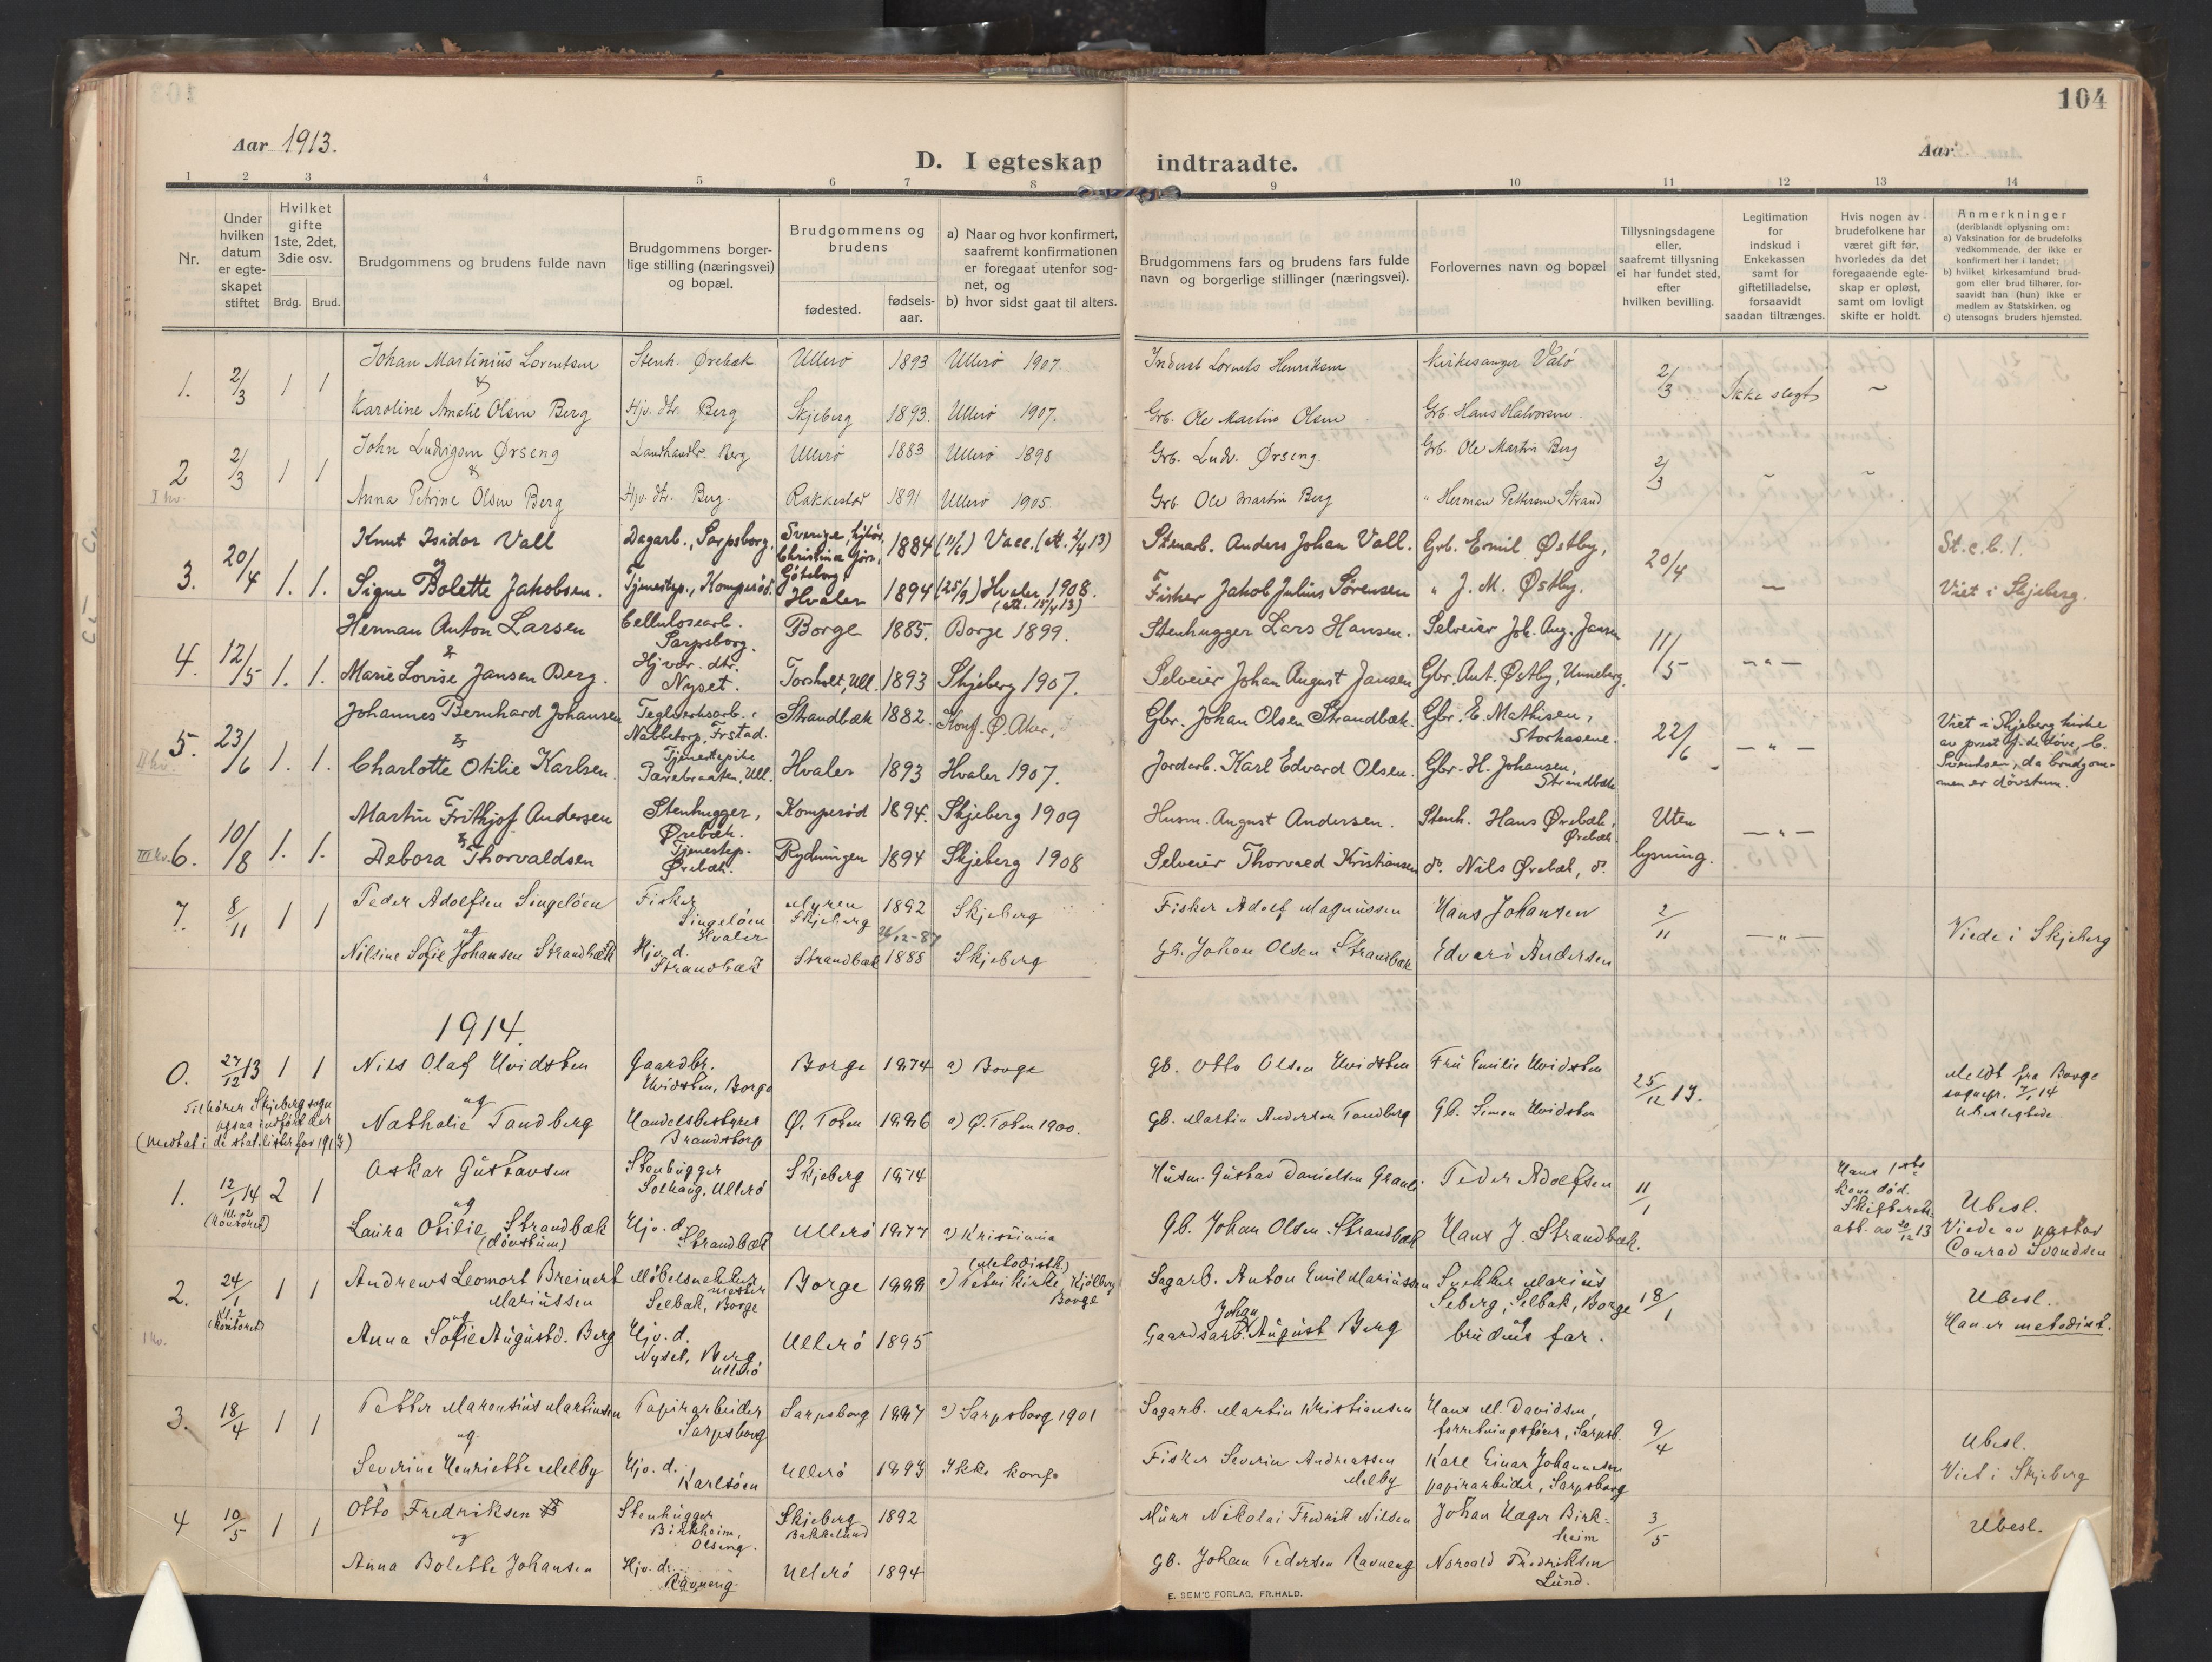 104
Aar 1913.
Aar
D. I egteskap indtraadte.
1 2 3 4 5 6 7 8 9 10 11 12 13 14
Nr.
Under hvilken datum er egteskapet stiftet
Hvilket gifte 1ste, 2det, 3die osv.
Brdg. Brud.
Brudgommens og brudens fulde navn
Brudgommens borgerlige stilling (næringsvei) og bopæl.
Brudgommens og brudens
fødested.
fødselsaar.
a) Naar og hvor konfirmert, saafremt konfirmationen er foregaat utenfor sognet, og
b) hvor sidst gaat til alters.
Brudgommens fars og brudens fars fulde navn og borgerlige stillinger (næringsvei).
Forlovernes navn og bopæl
Tillysningsdagene eller, saafremt tillysning ei har fundet sted, efter hvilken bevilling.
Legitimation for indskud i Enkekassen samt for giftetilladelse, forsaavidt saadan tiltrænges.
Hvis nogen av brudefolkene har været gift før, hvorledes da det foregaaende egteskap er opløst, samt om lovligt skifte er holdt.
Anmerkninger
(deriblandt oplysning om:
a) Vaksination for de brudefolks vedkommende, der ikke er konfirmert her i landet;
b) hvilket kirkesamfund brudgom eller brud tilhører, forsaavidt han (hun) ikke er medlem av Statskirken, og
c) utensogns bruders hjemsted.
1. 2/3 1 1 Johan Martinius Lorentsen Stenh. Ørebæk Ullerø 1893 Ullerø 1907. Inderst Lorents Henriksen Kirkesanger Valø 2/3 Ikke slegt ~
&
Karoline Amalie Olsen Berg Hjv. dtr. Berg Skjeberg 1893. Ullerø 1907. Grb. Ole Martin Olsen Grb. Hans Halvorsen
2 2/3 1 1 John Ludvigsen Ørseng Landhandlr. Berg Ullerø 1883 Ullerø 1898 Grb. Ludv. Ørseng. Grb. Ole Martin Berg 2/3 ~ ~
&
I kv. Anna Petrine Olsen Berg Hjv. dtr. Berg. Rakkestad 1891 Ullerø 1905. Grb. Ole Martin Berg " Herman Pettersen Strand
3. 20/4 1. 1. Knut Isidor Vall Dagarb., Sarpsborg. Sverige, Christina Göteborg. 1884 Vall. Stenarb. Anders Johan Vall. Grb. Emil Østby, 20/4 St.c.b. 1.
og
Signe Bolette Jakobsen. Tjenestep., Komperød. Hvaler 1894 (25/9) Hvaler 1908. Fisker Jakob Julius Sørensen " J. M. Østby. — Viet i Skjeberg.
4. 12/5 1. 1. Herman Anton Larsen Cellulosearb. Sarpsborg. Borge 1885. Borge 1899. Stenhugger Lars Hansen. Selveier Joh. Aug. Jansen 11/5 — " —
&
Marie Lovise Jansen Berg. Hjvær. dtr. Nyset. Torsholt, Ull. 1893 Skjeberg 1907. Selveier Johan August Jansen Gbr. Ant. Østby, Unneberg.
5. 23/6 1. 1. Johannes Bernhard Johansen Teglverksarb. Nabbetorp, Frstad. Strandbæk 1882. Konf. Ø. Aker. Gbr. Johan Olsen Strandbæk. Gbr. E. Mathisen, Storhasene. 22/6 — " — Viet i Skjeberg kirke av prest f. de døve, C. Svendsen, da brudgommen er døvstum.
&
II kv. Charlotte Otilie Karlsen. Tjenestepike Ull. Hvaler 1893 Hvaler 1907. Jordarb. Karl Edvard Olsen. Gbr. H. Johansen, Strandbæk
III kv. 6. 10/8 1. 1. Martin Frithjof Andersen Stenhugger, Ørebæk. Komperød 1894. Skjeberg 1909 Husm. August Andersen. Stenh. Hans Ørebæk, Ørebæk Uten lysning. — " —
&
Debora Thorvaldsen Tjenestep. Ørebæk. Rydningen 1894 Skjeberg 1908 Selveier Thorvald Kristiansen do. Nils Ørebæk, do.
7. 8/11 1 1 Peder Adolfsen Singeløen Fisker Singeløen Hvaler Myren Skjeberg 1892 Skjeberg Fisker Adolf Magnussen Hans Johansen 2/11 — " — Viede i Skjeberg
og
Nilsine Sofie Johansen Strandbæk Hjv. d. Strandbæk Strandbæk 1888 Skjeberg Gb. Johan Olsen Strandbæk Edvard Andersen
1914.
0. 27/12 13 1 1 Nils Olaf Hvidsten Gaardbr. Hvidsten, Borge Borge 1874 a) Borge Gb. Otto Olsen Hvidsten Fru Emilie Hvidsten 25/12 13. Meldt fra Borge sognepr. 7/1 14 Ubeslegtede.
Tilhører Skjeberg sogn
ogsaa indført der
(Medtat i de stat. lister for 1913)
og
Nathalie Tandberg Handelsbestyrer Brandstorp Ø. Toten 1886 a) Ø. Toten 1900. Gb. Martin Andersen Tandberg Gb. Simen Hvidsten
1. 12/1 14 2 1 Oskar Gustavsen Stenhugger Solhaug, Ullerø Skjeberg 1874 Husm. Gustav Danielsen Peder Adolfsen 11/1 Hans 1ste kone død. Skifteratt. av 30/12 13 Ubesl.
(Kontoret)
og
Laura Otilie Strandbæk Hjv. d. Strandbæk Ullerø 1877 a) Kristiania Gb. Johan Olsen Strandbæk Hans J. Strandbæk. Viede av pastor Conrad Svendsen
(døvstum)
2. 24/1 1 1 Andrews Leomort Breinert Mariussen Møbelsnekkermester Selbak, Borge Borge 1888 (Metodistk) a) Petri kirke, Kjølberg Borge Sagarb. Anton Emil Mariussen Snekker Marius Seberg, Selbak, Borge 18/1 Ubesl.
Kl. 2
(Kontoret)
og
I kv. Anna Sofie Augustd. Berg Hjv. d. Nyset, Berg Ullerø Ullerø 1895 Gaardsarb. Johan August Berg og brudens far. Han er metodist.
3. 18/4 1 1 Petter Marentius Martinsen Papirarbeider Sarpsborg Sarpsborg 1887 a) Sarpsborg 1901 Sagarb. Martin Kristiansen Hans M. Davidsen, forretningsfører, Sarpsb. 9/4 Ubesl.
og
Severine Henriette Melby Hjv. d. Karlsøen Ullerø 1893 Ikke konf. Fisker Severin Andreassen Melby Karl Einar Johannesen papirarbeider, Sarpsborg Viet i Skjeberg
4 10/5 1 1 Otto Fredriksen Stenhugger Birkheim, Olseng. Skjeberg Bakkelund 1892 Murer Nikolai Fredrik Nilsen Johan Hager Birkheim 3/5 Ubesl.
og
Anna Bolette Johansen Hjv. d. Ravneng. Ullerø 1894 Gb. Johan Pedersen Ravneng Norvald Fredriksen Lund.
E. SEM'S FORLAG, FR.HALD.